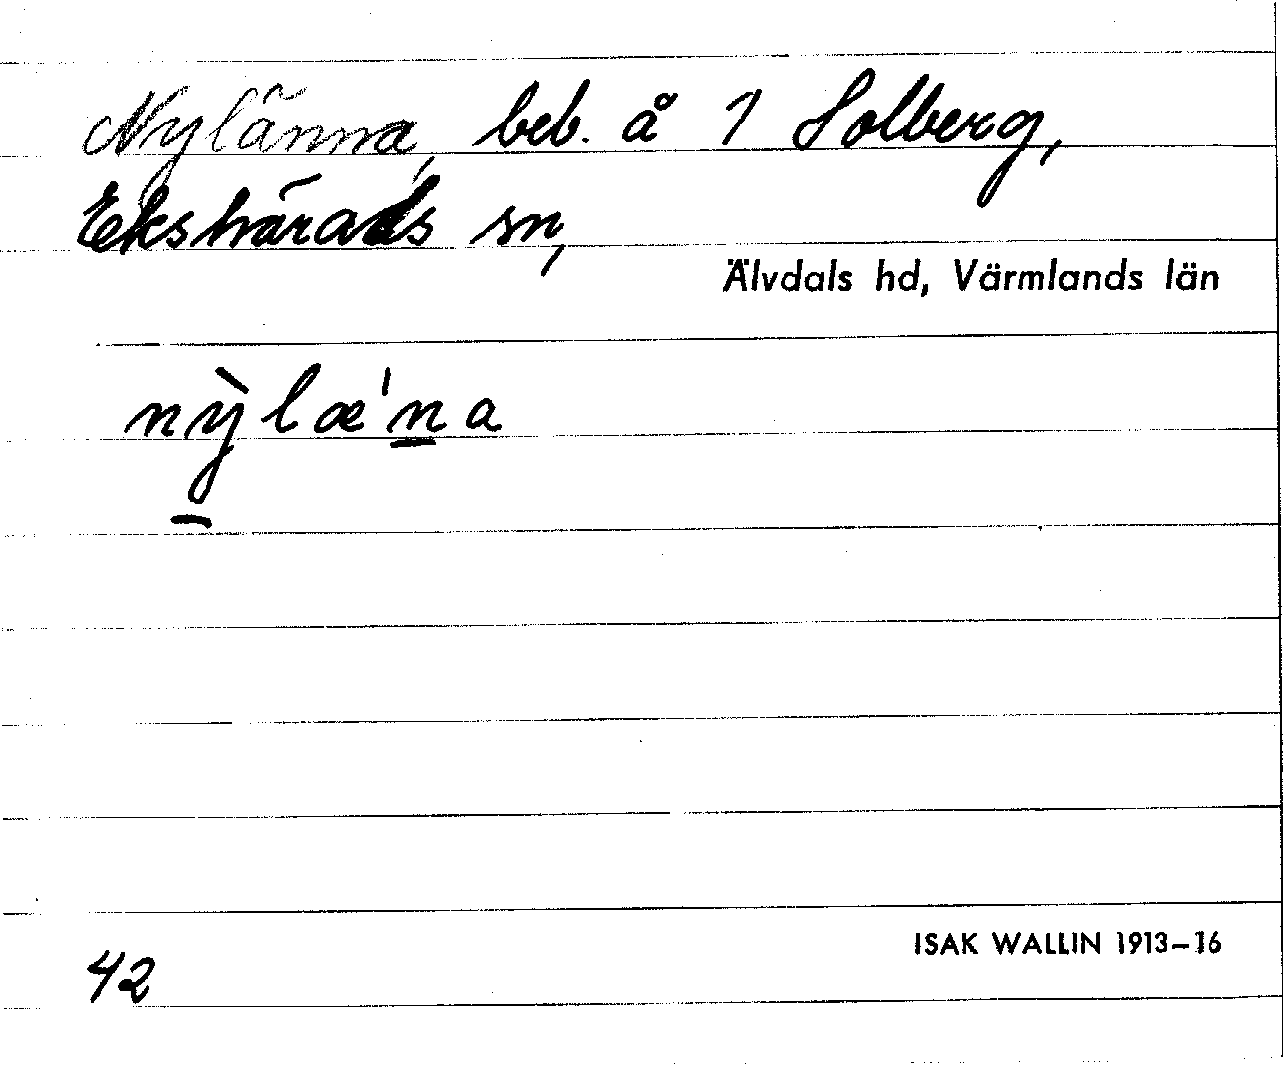 Nylänna, beb. å 1 Solberg,
Ekshärads sn,
Älvdals hd, Värmlands län
nỳlæ'n̲a
ISAK WALLIN 1913–16
42